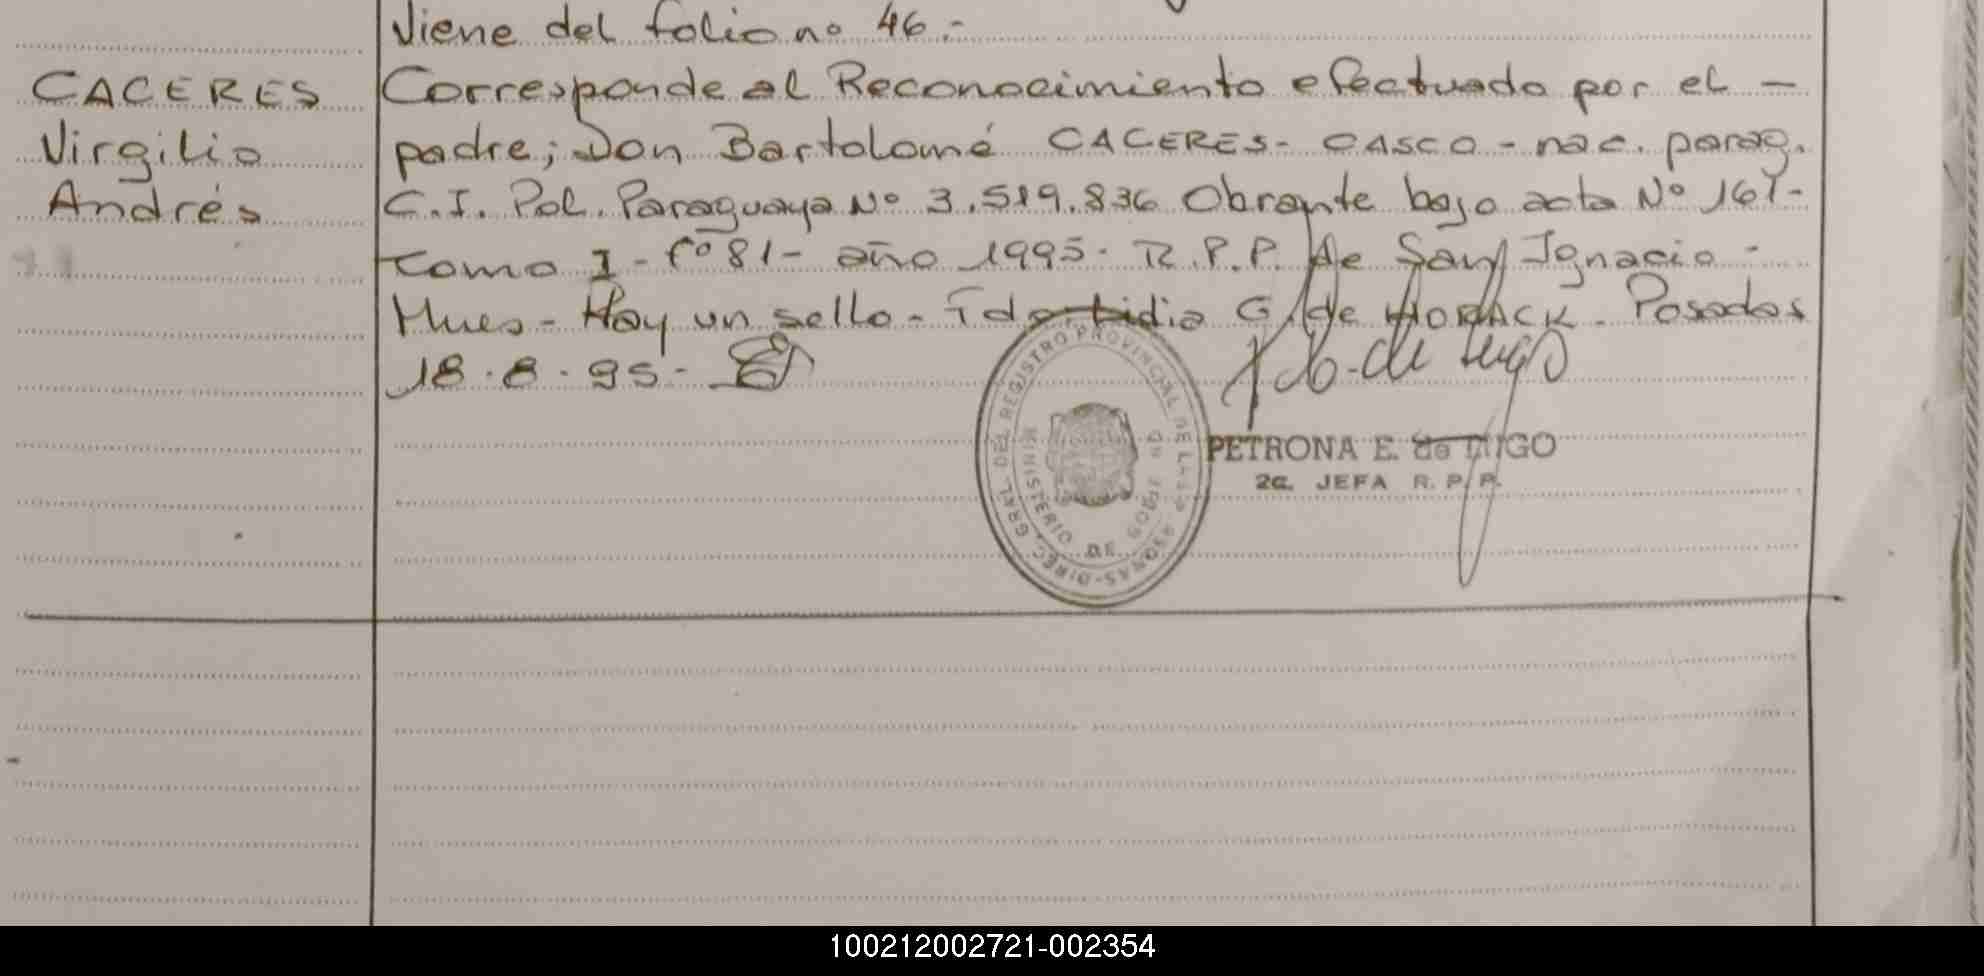 Viene del folio no 46.-
CACERES
Virgilio
Andrés
Corresponde al Reconocimiento efectuado por el -
padre; Don Bartolomé CACERES- CASCO - nac. parag.
C.I. Pol. Paraguaya No 3.519.836 Obrante bajo acta No 167-
Tomo I - fo 81 - año 1995. R.P.P. de San Ignacio -
Mnes - Hay un sello - Fdo Lidia G. de HORACK. Posadas
18.8.95.-
PETRONA E. de LUGO
2a. JEFA R.P.P.
DIREC. GRAL. DEL REGISTRO PROVINCIAL DE
MINISTERIO DE
100212002721-002354